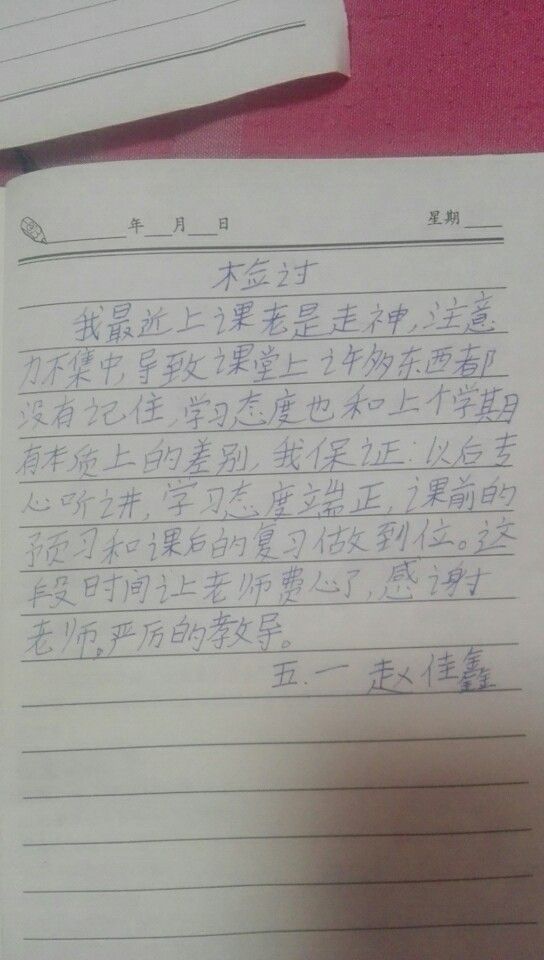 年 月 日 星期
检讨
我最近上课老是走神,注意
力不集中,导致课堂上许多东西都
没有记住,学习态度也和上个学期
有本质上的差别,我保证:以后专
心听讲,学习态度端正,课前的
预习和课后的复习做到位。这
段时间让老师费心了,感谢
老师。严厉的教导。
五.一 赵佳鑫